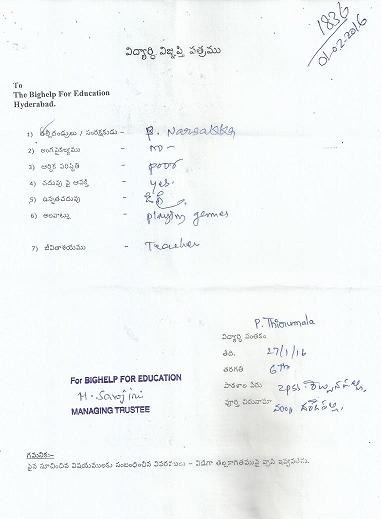 1836
01-02-2016
విద్యార్థి విజ్ఞప్తి పత్రము
To
The Bighelp For Education
Hyderabad.
1) తల్లిదండ్రులు / సంరక్షకుడు - P. Narsakka
2) అంగవైకల్యము - no -
3) ఆర్థిక పరిస్థితి - poor
4) చదువు పై ఆసక్తి - yes.
5) ఉన్నతచదువు -
6) అలవాట్లు - playing games
7) జీవితాశయము - Teacher
P. Thirumala
విద్యార్థి సంతకం
తేది. 27/1/16
తరగతి 6th
పాఠశాల పేరు ZPSS
పూర్తి చిరునామా
For BIGHELP FOR EDUCATION
M. Sarojini
MANAGING TRUSTEE
గమనిక:-
పైన సూచించిన విషయములకు సంబంధించిన వివరములు - విడిగా తెల్లకాగితముపై వ్రాసి ఇవ్వవలెను.